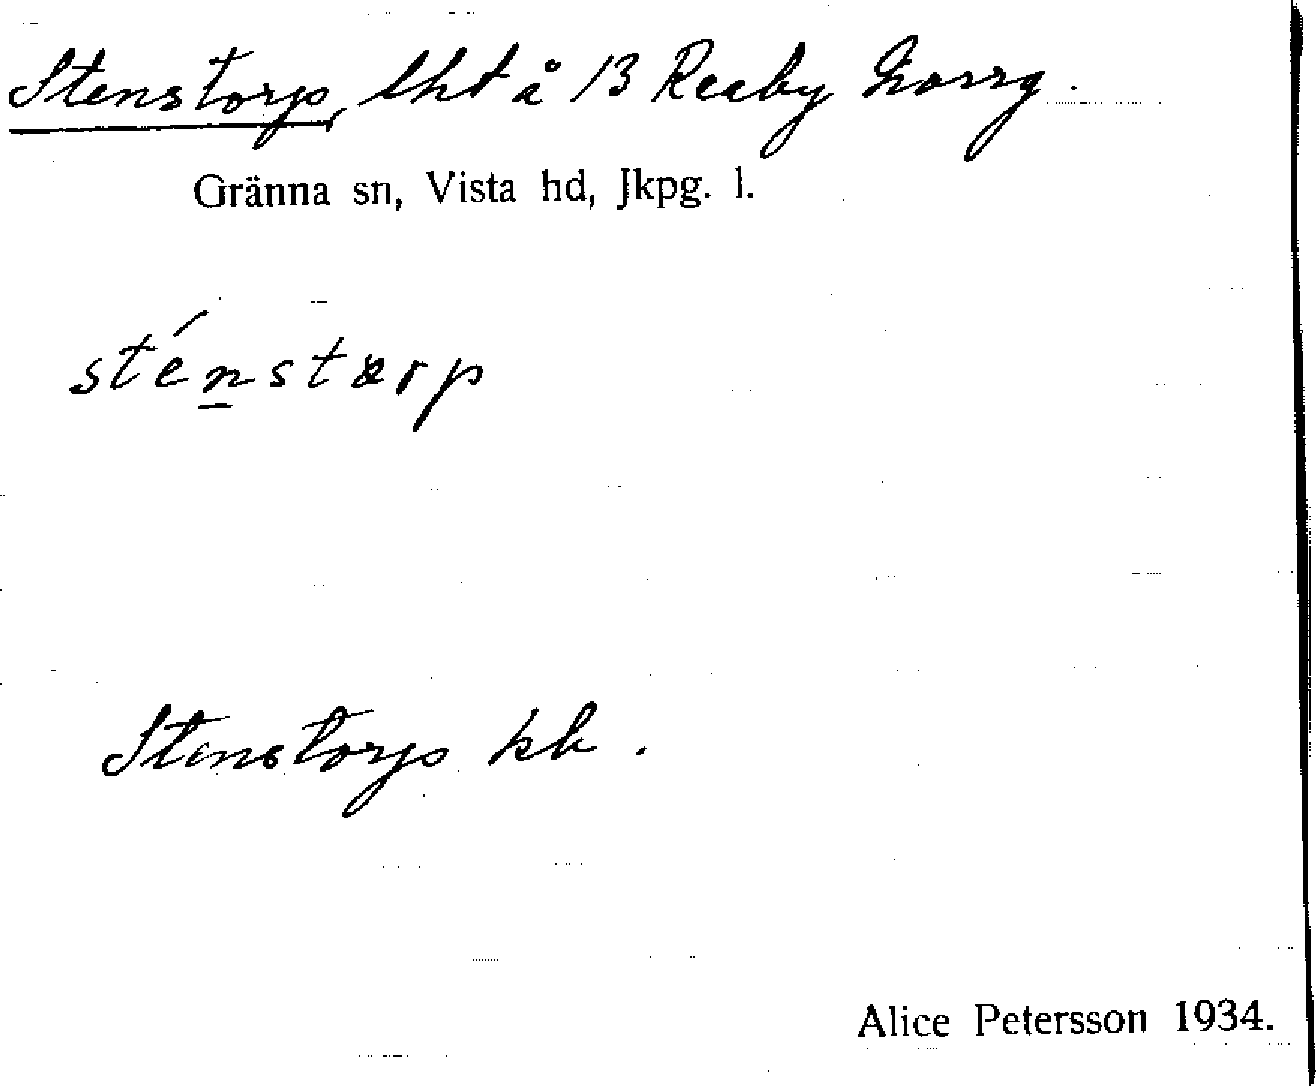 Stenstorp, lht å 13 Reaby Norrg.
Gränna sn, Vista hd, Jkpg. l.
sténstærp
Stenstorp kb.
Alice Petersson 1934.